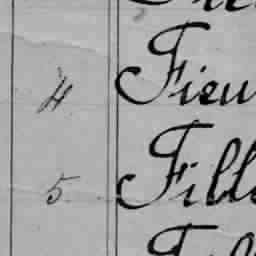 4 Fieu
5 Fille